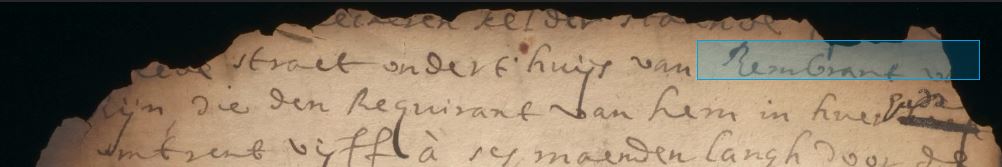 kelder staende
straet ondert huijs van Rembrant v
Rijn, die den Requirant van hem in huer
omtrent vijff à ses maenden langh door de